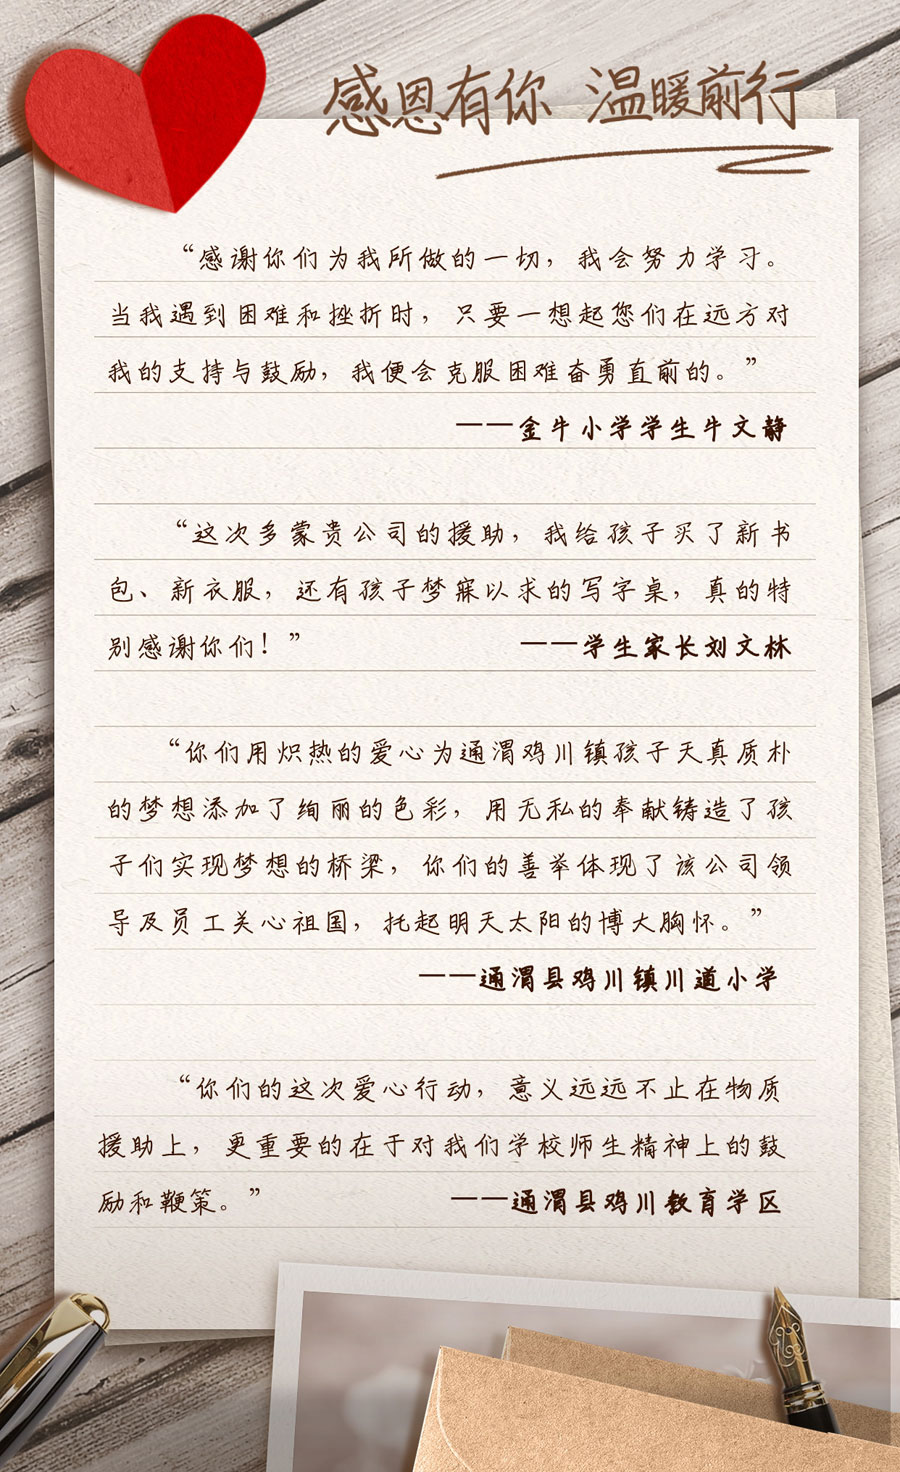 感恩有你 温暖前行
“感谢你们为我所做的一切，我会努力学习。
当我遇到困难和挫折时，只要一想起您们在远方对
我的支持与鼓励，我便会克服困难奋勇直前的。”
——金牛小学学生牛文静
“这次多蒙贵公司的援助，我给孩子买了新书
包、新衣服，还有孩子梦寐以求的写字桌，真的特
别感谢你们！” ——学生家长刘文林
“你们用炽热的爱心为通渭鸡川镇孩子天真质朴
的梦想添加了绚丽的色彩，用无私的奉献铸造了孩
子们实现梦想的桥梁，你们的善举体现了该公司领
导及员工关心祖国，托起明天太阳的博大胸怀。”
——通渭县鸡川镇川道小学
“你们的这次爱心行动，意义远远不止在物质
援助上，更重要的在于对我们学校师生精神上的鼓
励和鞭策。” ——通渭县鸡川教育学区